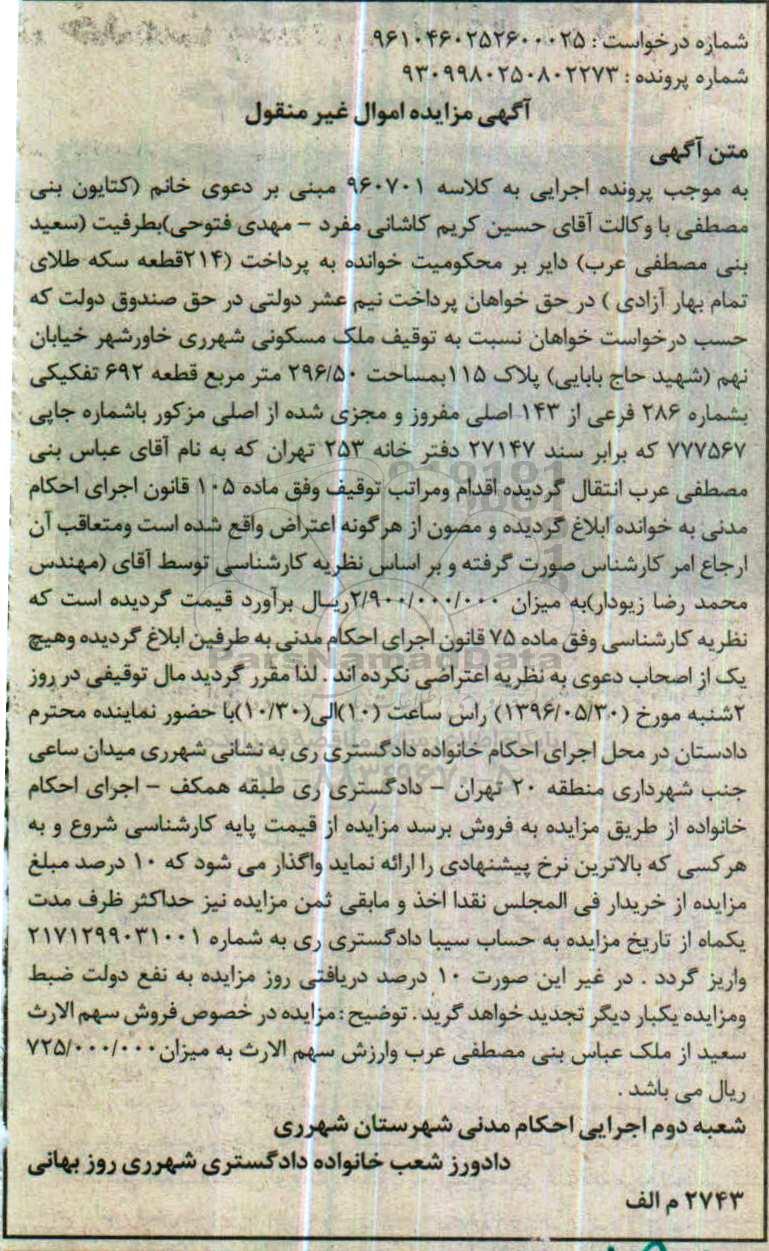 شماره درخواست : ۹۶۱۰۴۶۰۲۵۲۶۰۰۰۲۵
شماره پرونده : ۹۳۰۹۹۸۰۲۵۰۸۰۲۲۷۳
آگهی مزایده اموال غیر منقول
متن آگهی
به موجب پرونده اجرایی به کلاسه ۹۶۰۷۰۱ مبنی بر دعوی خانم (کتایون بنی
مصطفی با وکالت آقای حسین کریم کاشانی مفرد – مهدی فتوحی)بطرفیت (سعید
بنی مصطفی عرب) دایر بر محکومیت خوانده به پرداخت (۲۱۴قطعه سکه طلای
تمام بهار آزادی ) در حق خواهان پرداخت نیم عشر دولتی در حق صندوق دولت که
حسب درخواست خواهان نسبت به توقیف ملک مسکونی شهرری خاورشهر خیابان
نهم (شهید حاج بابایی) پلاک ۱۱۵بمساحت ۲۹۶/۵۰ متر مربع قطعه ۶۹۲ تفکیکی
بشماره ۲۸۶ فرعی از ۱۴۳ اصلی مفروز و مجزی شده از اصلی مزکور باشماره جاپی
۷۷۷۵۶۷ که برابر سند ۲۷۱۴۷ دفتر خانه ۲۵۳ تهران که به نام آقای عباس بنی
مصطفی عرب انتقال گردیده اقدام ومراتب توقیف وفق ماده ۱۰۵ قانون اجرای احکام
مدنی به خوانده ابلاغ گردیده و مصون از هرگونه اعتراض واقع شده است ومتعاقب آن
ارجاع امر کارشناس صورت گرفته و بر اساس نظریه کارشناسی توسط آقای (مهندس
محمد رضا زیودار)به میزان ۲/۹۰۰/۰۰۰/۰۰۰ریسال برآورد قیمت گردیده است که
نظریه کارشناسی وفق ماده ۷۵ قانون اجرای احکام مدنی به طرفین ابلاغ گردیده وهیچ
یک از اصحاب دعوی به نظریه اعتراضی نکرده اند . لذا مقرر گردید مال توقیفی در روز
۲شنبه مورخ (۱۳۹۶/۰۵/۳۰) راس ساعت (۱۰)الی(۱۰/۳۰)با حضور نماینده محترم
دادستان در محل اجرای احکام خانواده دادگستری ری به نشانی شهرری میدان ساعی
جنب شهرداری منطقه ۲۰ تهران – دادگستری ری طبقه همکف – اجرای احکام
خانواده از طریق مزایده به فروش برسد مزایده از قیمت پایه کارشناسی شروع و به
هرکسی که بالاترین نرخ پیشنهادی را ارائه نماید واگذار می شود که ۱۰ درصد مبلغ
مزایده از خریدار فی المجلس نقدا اخذ و مابقی ثمن مزایده نیز حداکثر ظرف مدت
یکماه از تاریخ مزایده به حساب سیبا دادگستری ری به شماره ۲۱۷۱۲۹۹۰۳۱۰۰۱
واریز گردد . در غیر این صورت ۱۰ درصد دریافتی روز مزایده به نفع دولت ضبط
ومزایده یکبار دیگر تجدید خواهد گرید . توضیح : مزایده در خصوص فروش سهم الارث
سعید از ملک عباس بنی مصطفی عرب وارزش سهم الارث به میزان۷۲۵/۰۰۰/۰۰۰
ریال می باشد .
شعبه دوم اجرایی احکام مدنی شهرستان شهرری
دادورز شعب خانواده دادگستری شهرری روز بهانی
۲۷۴۳ م الف
ParsNamadData